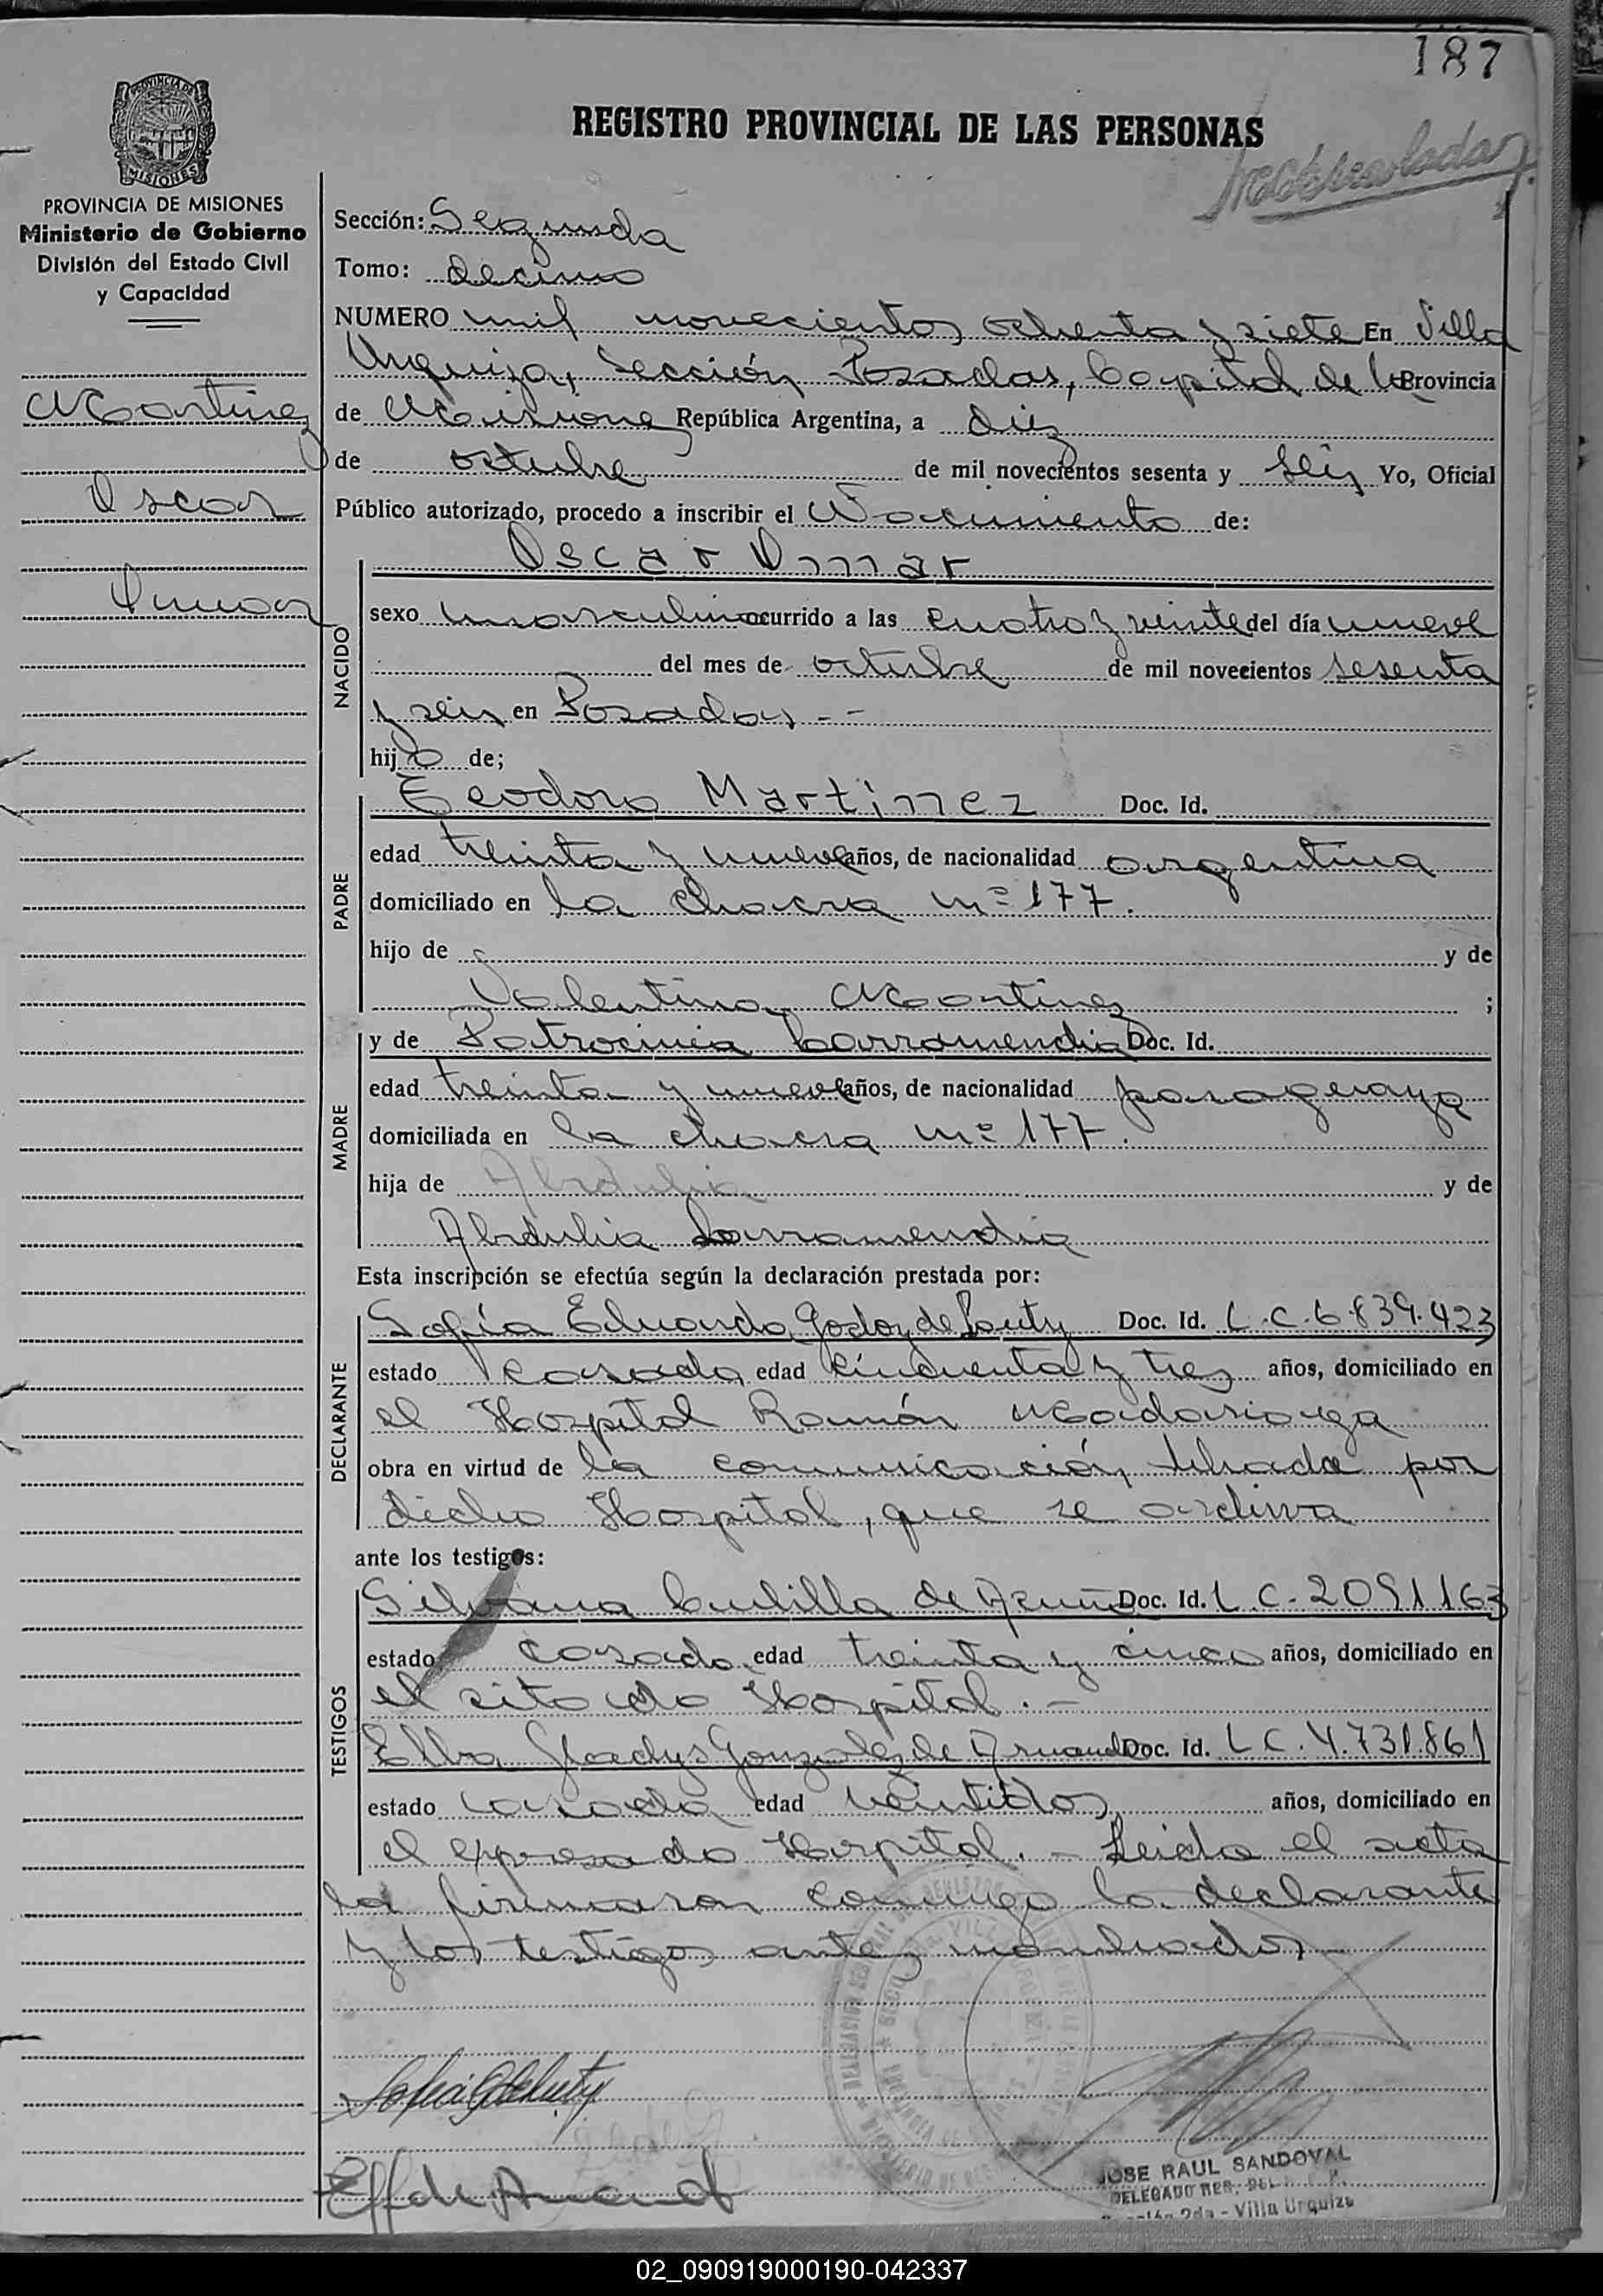 187
REGISTRO PROVINCIAL DE LAS PERSONAS
PROVINCIA DE MISIONES
PROVINCIA DE MISIONES
Ministerio de Gobierno
División del Estado Civil
y Capacidad
Martinez
Oscar
Omar
Sección: Segunda
Tomo: decimo
NUMERO mil novecientos ochenta y siete En Villa
Urquiza, Sección Posadas, Capital de la Provincia
de Misiones República Argentina, a diez
de octubre de mil novecientos sesenta y seis Yo, Oficial
Público autorizado, procedo a inscribir el Nacimiento de:
Oscar Omar
NACIDO
sexo masculino ocurrido a las cuatro y veinte del día nueve
del mes de octubre de mil novecientos sesenta
y seis en Posadas --
hijo de;
Teodoro Martinez Doc. Id.
PADRE
edad treinta y nueve años, de nacionalidad argentina
domiciliado en la chacra nº 177.
hijo de y de
Valentina Martinez ;
MADRE
y de Patrocinia Larramendia Doc. Id.
edad treinta y nueve años, de nacionalidad paraguaya
domiciliada en la chacra nº 177.
hija de Abdulia y de
Abdulia Larramendia
Esta inscripción se efectúa según la declaración prestada por:
DECLARANTE
Sofía Eduarda Godoy de Louty Doc. Id. L.C.6.839.423
estado casada edad cincuenta y tres años, domiciliado en
el Hospital Ramón Madariaga
obra en virtud de la comunicación librada por
dicho Hospital, que se archiva
ante los testigos:
TESTIGOS
Silvana Cubilla de Acuña Doc. Id. L.C. 2091163
estado casada edad treinta y cinco años, domiciliado en
el citado Hospital.-
Elba Gladys Gonzalez de Doc. Id. LC. 4.731.861
estado casada edad veintidos años, domiciliado en
el expresado Hospital.- Leida el acta
la firmaron conmigo la declarante
y los testigos antes nombrados-
JOSE RAUL SANDOVAL
DELEGADO
2da - Villa Urquiza
02_090919000190-042337